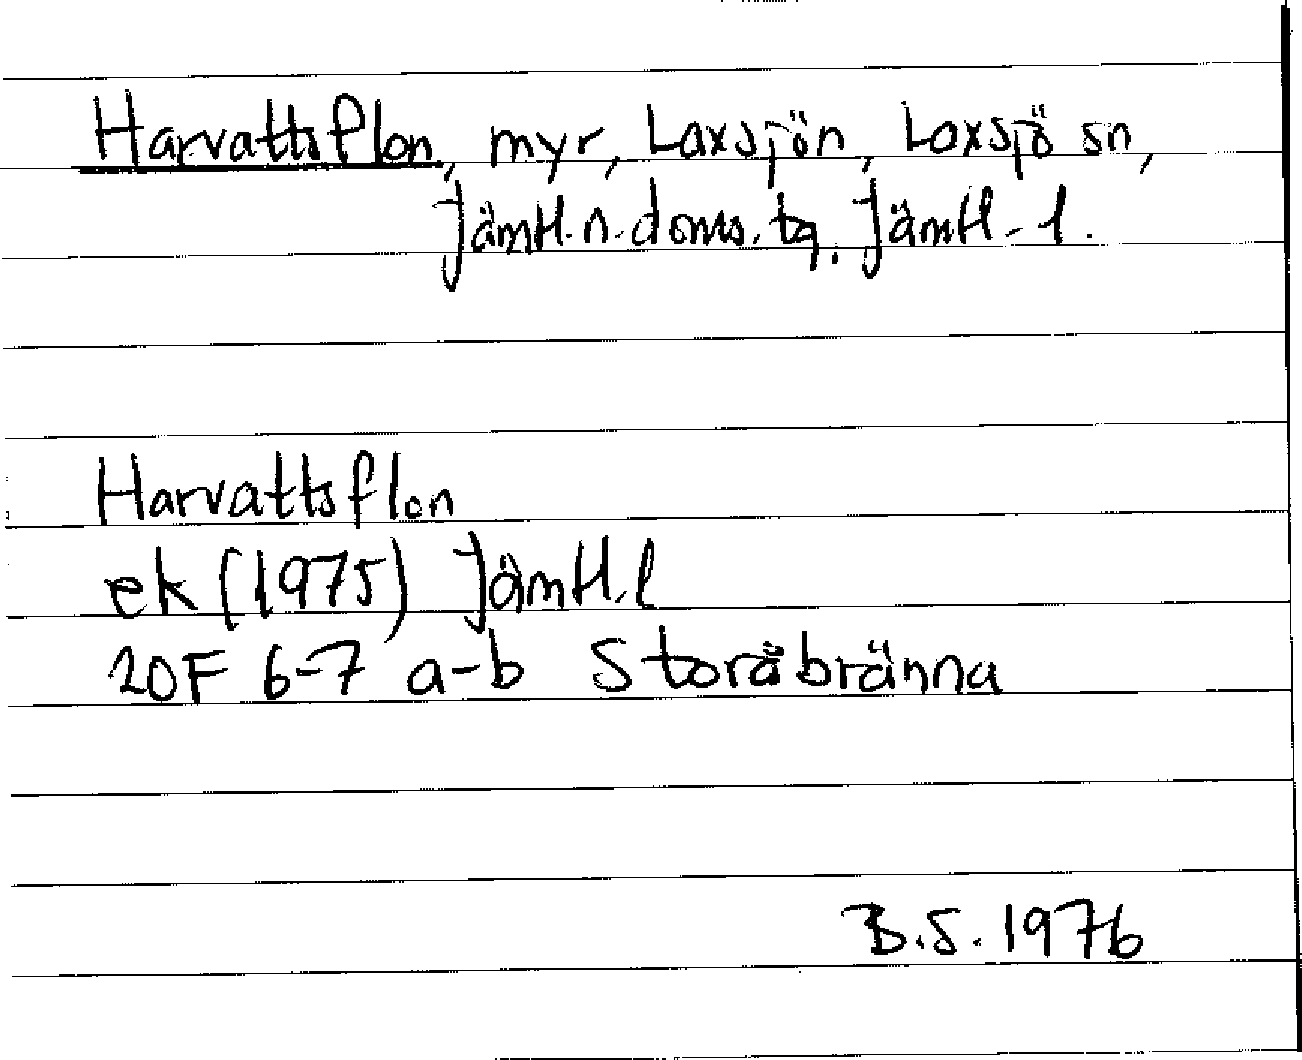 Harvattsflon, myr, Laxsjön, Laxsjö sn,
Jämtl. n. doms. tg. Jämtl. l.
Harvattsflon
ek (1975) Jämtl. l
20F 6-7 a-b Storåbränna
B.S. 1976